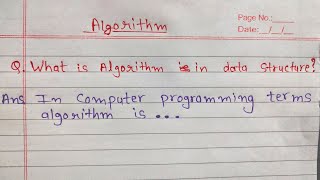 Algorithm
Page No.:
Date: / /
Q. What is Algorithm is in data structure?
Ans In Computer programming terms,
algorithm is ...